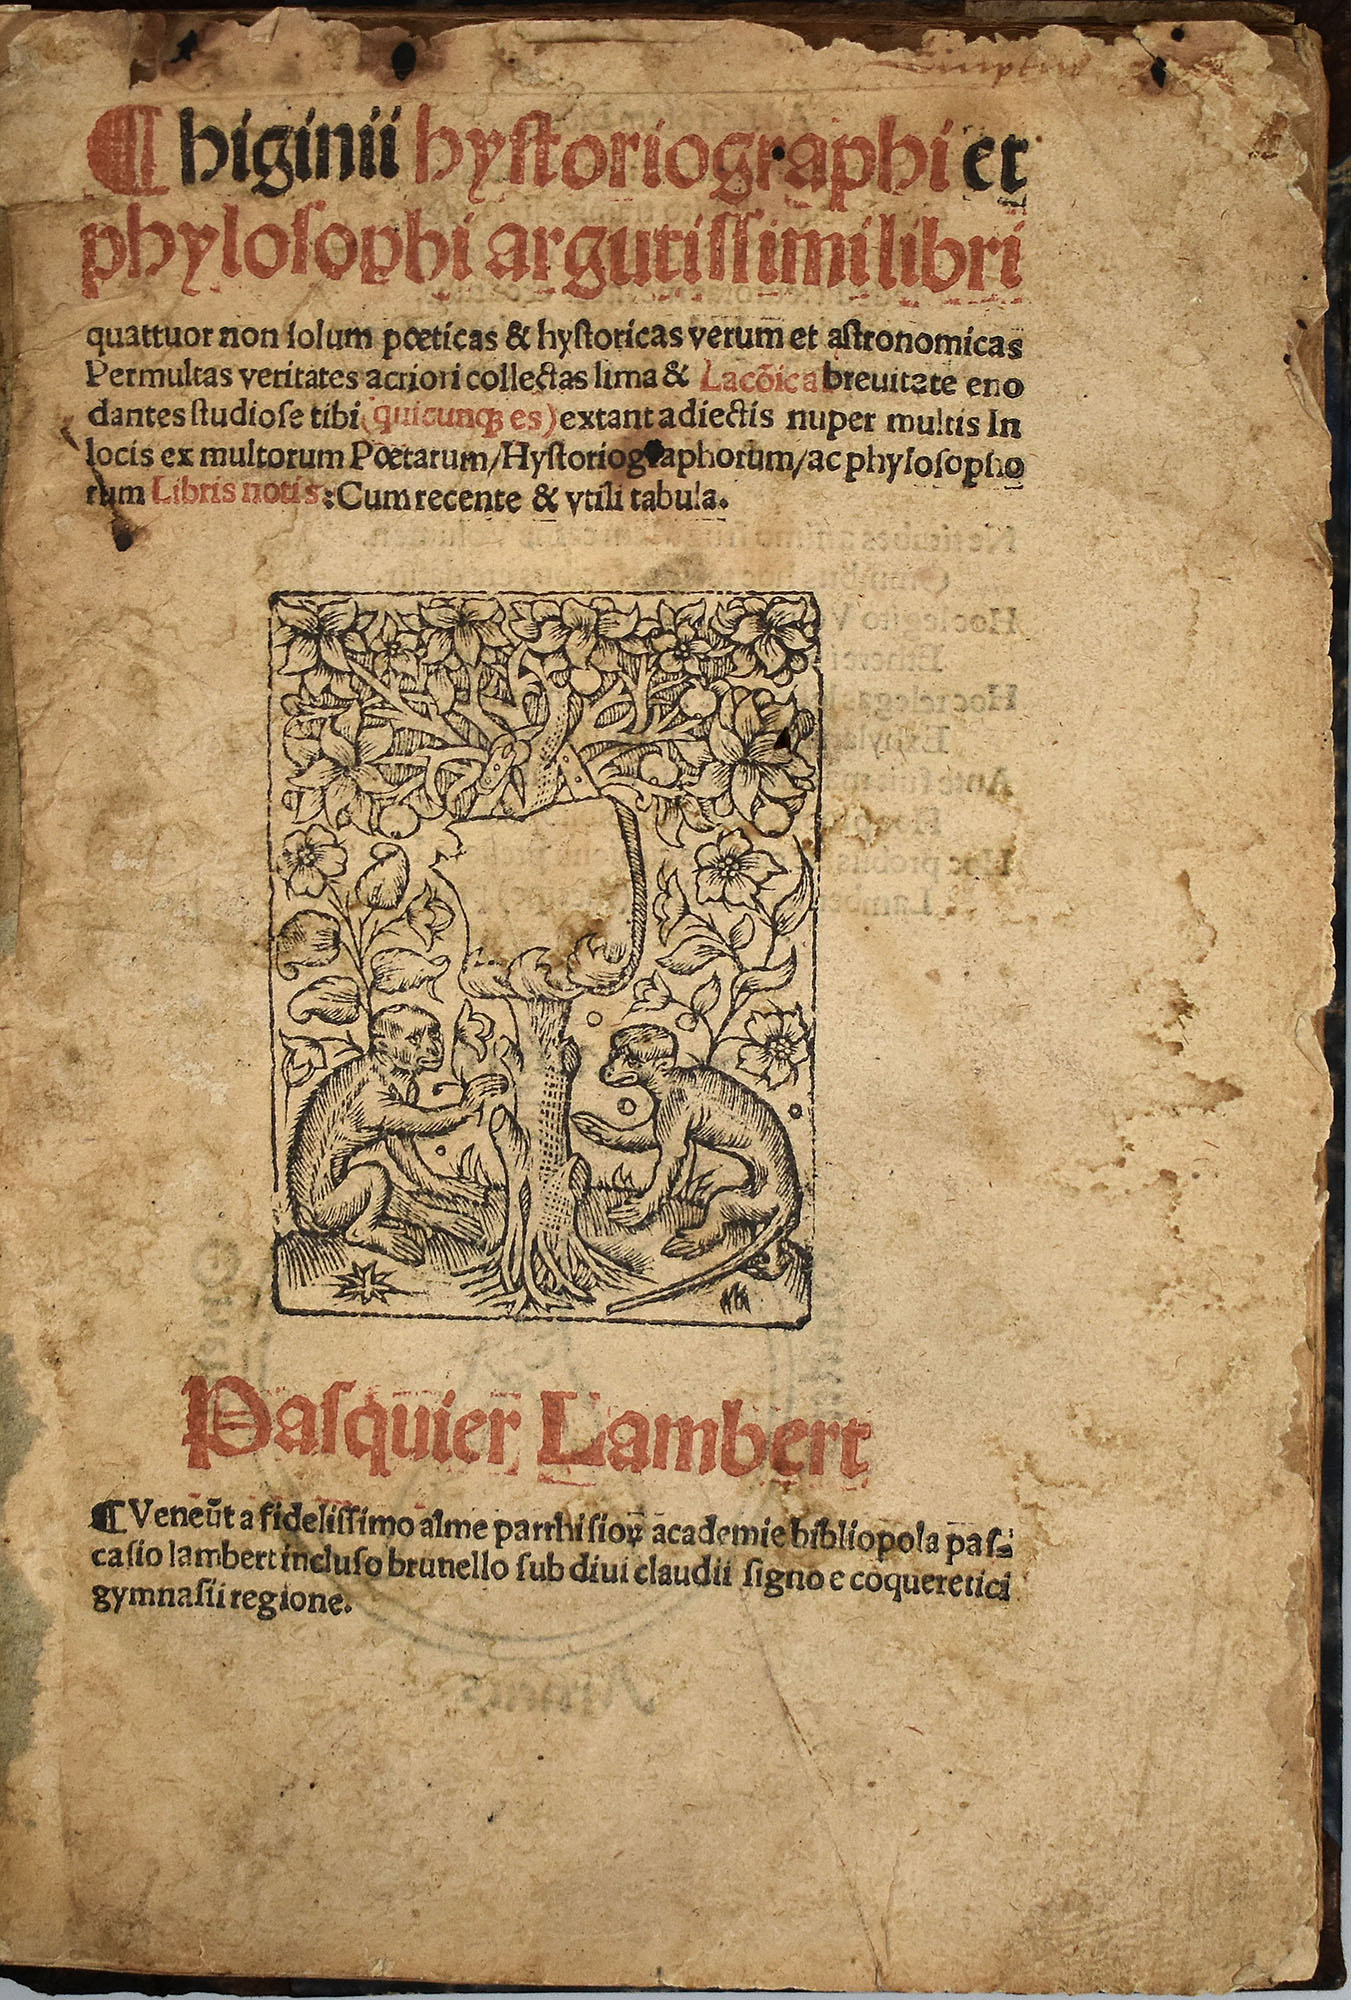 ¶ higinii hyſtoriographi et
phyloſophi argutiſſimi libri
quattuor non ſolum pœticas & hyſtoricas verum et aſtronomicas
Permultas veritates acriori collectas lima & Lacõica breuitate eno
dantes ſtudioſe tibi (quicunqꝫ es) extant adiectis nuper multis In
locis ex multorum Pœtarum/Hyſtoriographorum/ac phyloſopho
rum Libris notis: Cum recente & vtili tabula.
Paſquier Lambert
¶ Veneũt a fideliſſimo alme parrhiſioꝝ academie bibliopola paſ⸗
caſio lambert incluſo brunello ſub diui claudii ſigno e coqueretici
gymnaſii regione.